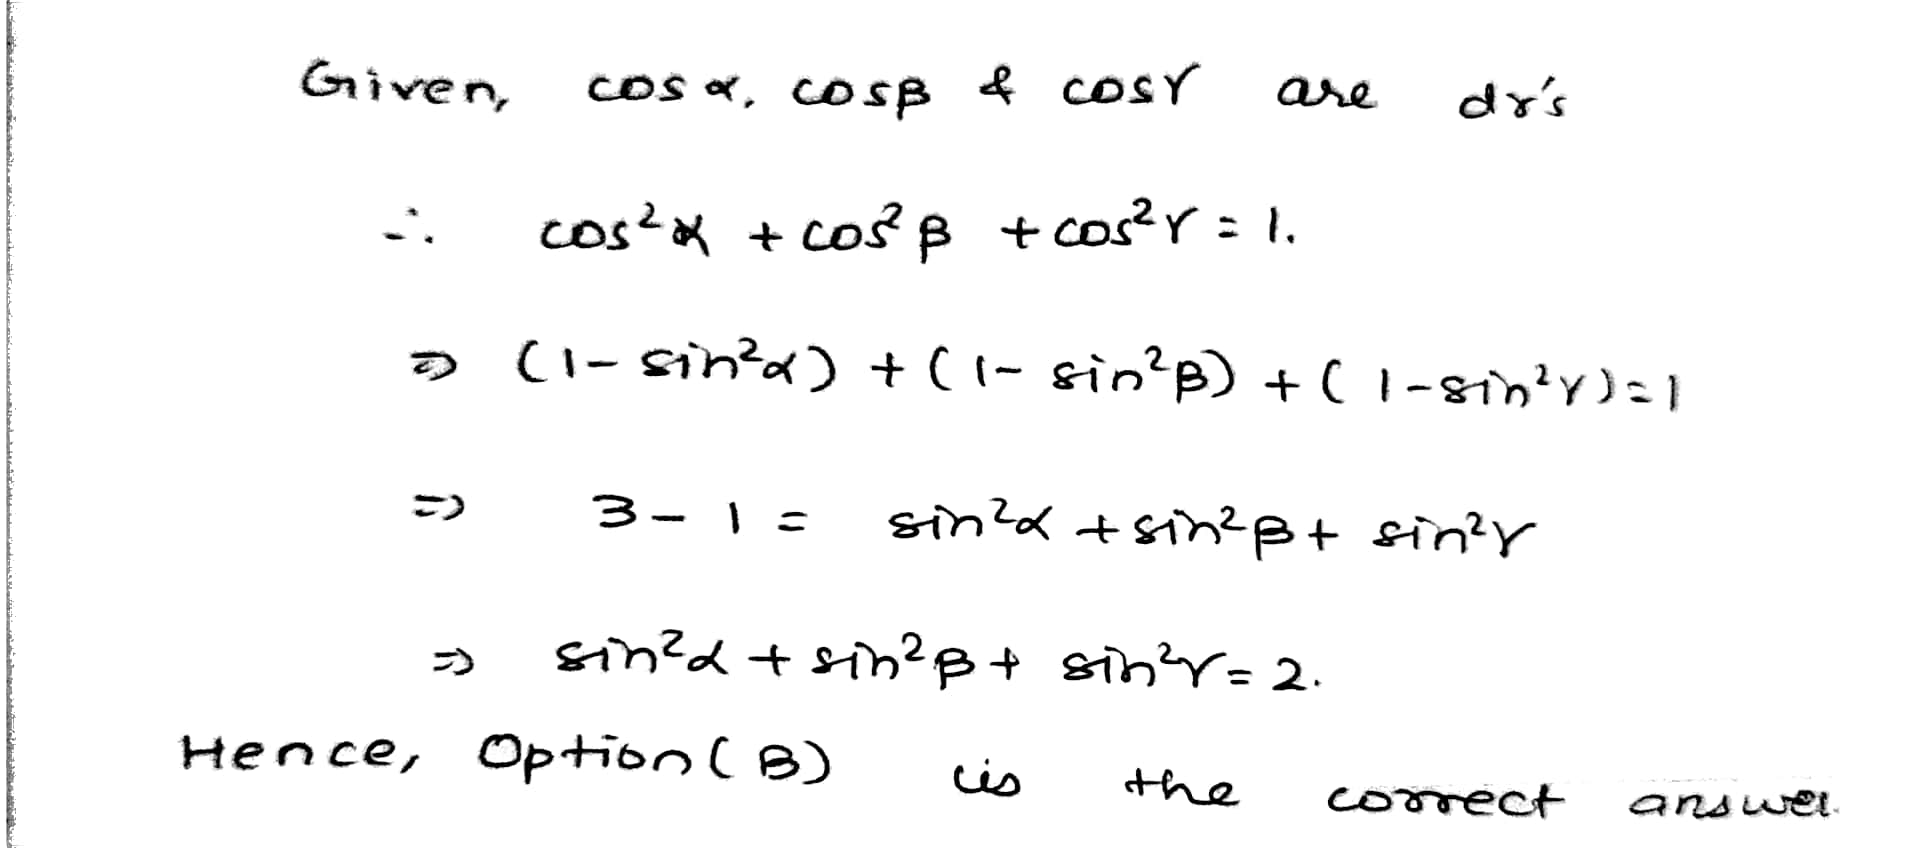 Given, cos α, cosβ & cosγ are dr's
∴ cos²α + cos²β + cos²γ = 1.
⇒ (1- sin²α) + (1- sin²β) + (1-sin²γ)=1
⇒ 3-1 = sin²α + sin²β + sin²γ
⇒ sin²α + sin²β + sin²γ = 2.
Hence, Option (B) is the correct answer.